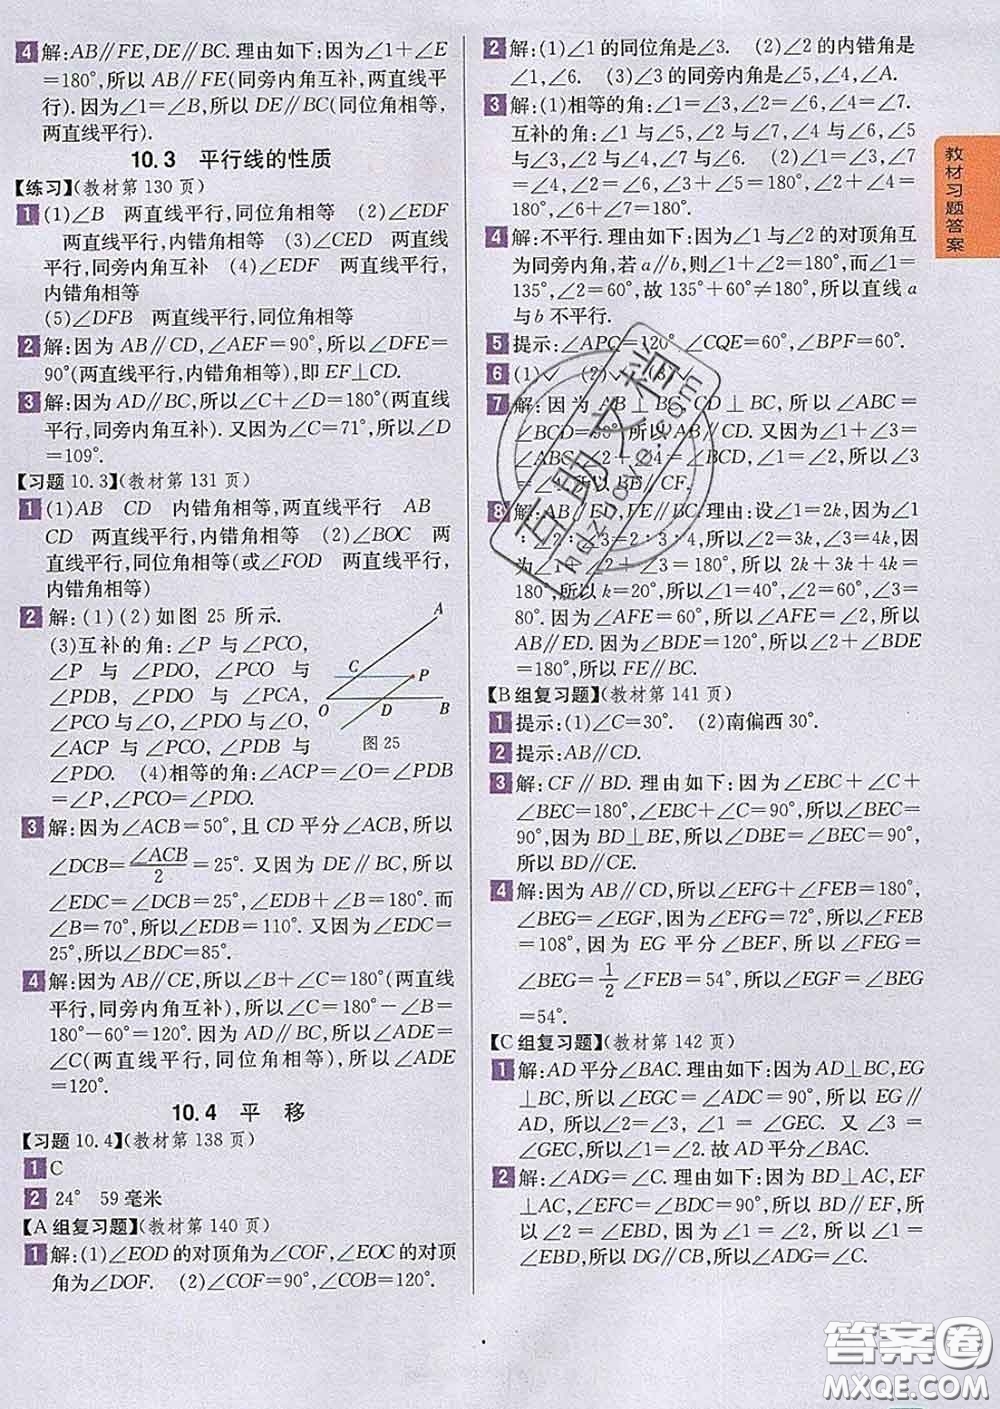 4 解:AB∥FE,DE∥BC.理由如下:因为∠1+∠E
=180°,所以 AB∥FE(同旁内角互补,两直线平
行).因为∠1=∠B,所以 DE∥BC(同位角相等,
两直线平行).
10.3 平行线的性质
【练习】(教材第 130 页)
1 (1)∠B 两直线平行,同位角相等 (2)∠EDF
两直线平行,内错角相等 (3)∠CED 两直线平
行,同旁内角互补 (4)∠EDF 两直线平行,
内错角相等
(5)∠DFB 两直线平行,同位角相等
2 解:因为 AB∥CD,∠AEF=90°,所以∠DFE=
90°(两直线平行,内错角相等),即 EF⊥CD.
3 解:因为 AD∥BC,所以∠C+∠D=180°(两直线
平行,同旁内角互补).又因为∠C=71°,所以∠D=
109°.
【习题 10.3】(教材第 131 页)
1 (1)AB CD 内错角相等,两直线平行 AB
CD 两直线平行,内错角相等 (2)∠BOC 两
直线平行,同位角相等(或∠FOD 两直线平行,
内错角相等)
2 解:(1)(2)如图 25 所示.
(3)互补的角:∠P 与∠PCO,
∠P 与 ∠PDO, ∠PCO 与
∠PDB, ∠PDO 与 ∠PCA,
∠PCO 与∠O,∠PDO 与∠O,
∠ACP 与 ∠PCO, ∠PDB 与
∠PDO. (4)相等的角:∠ACP=∠O=∠PDB
=∠P,∠PCO=∠PDO.
A
C
P
O
D
B
图 25
3 解:因为∠ACB=50°,且 CD 平分∠ACB,所以
∠DCB=∠ACB/2=25°.又因为 DE∥BC,所以
∠EDC=∠DCB=25°,∠EDB+∠B=180°.而
∠B=70°,所以∠EDB=110°.又因为∠EDC=
25°,所以∠BDC=85°.
4 解:因为 AB∥CE,所以∠B+∠C=180°(两直线
平行,同旁内角互补),所以∠C=180°-∠B=
180°-60°=120°.因为 AD∥BC,所以∠ADE=
∠C(两直线平行,同位角相等),所以∠ADE
=120°.
10.4 平 移
【习题 10.4】(教材第 138 页)
1 C
2 24° 59 毫米
【A 组复习题】(教材第 140 页)
1 解:(1)∠EOD 的对顶角为∠COF,∠EOC 的对顶
角为∠DOF. (2)∠COF=90°,∠COB=120°.
2 解:(1)∠1 的同位角是∠3. (2)∠2 的内错角是
∠1,∠6. (3)∠3 的同旁内角是∠5,∠4,∠A.
3 解:(1)相等的角:∠1=∠3,∠4=∠6=∠7.
互补的角:∠1 与∠5,∠2 与∠4,∠2 与∠6,
∠2 与∠7,∠3 与∠5. (2)∠1+∠3=∠4,∠1+
∠5=180°,∠2+∠6=180°,∠3+∠5=180°,∠2+
∠4=180°,∠2+∠7=180°.
4 解:不平行.理由如下:因为∠1 与∠2 的对顶角互
为同旁内角,若 a∥b,则∠1+∠2=180°,而∠1=
135°,∠2=60°,故 135°+60°≠180°,所以直线 a
与 b 不平行.
5 提示:∠APQ=120°,∠CQE=60°,∠BPF=60°.
6 (1)✓ (2)✓ (3)✓
7 解:因为 AB⊥BC,CD⊥BC,所以∠ABC=
∠BCD=90°,所以 AB∥CD.又因为∠1+∠3=
∠ABC,∠2+∠4=∠BCD,∠1=∠2,所以∠3=
∠4,所以 BE∥CF.
8 解:AB∥ED,FE∥BC.理由:设∠1=2k,因为∠1
∶∠2∶∠3=2∶3∶4,所以∠2=3k,∠3=4k,
因为∠1+∠2+∠3=180°,所以 2k+3k+4k=
180°,所以 k=20°,所以∠1=40°,∠2=60°,∠3=
80°.因为∠AFE=60°,所以∠AFE=∠2,所以
AB∥ED.因为∠BDE=120°,所以∠2+∠BDE
=180°,所以 FE∥BC.
【B 组复习题】(教材第 141 页)
1 提示:(1)∠C=30°. (2)南偏西 30°.
2 提示:AB∥CD.
3 解:CF∥BD.理由如下:因为∠EBC+∠C+
∠BEC=180°,∠EBC+∠C=90°,所以∠BEC=
90°.因为 BD⊥BE,所以∠DBE=∠BEC=90°,
所以 BD∥CE.
4 解:因为 AB∥CD,所以∠EFG+∠FEB=180°,
∠BEG=∠EGF,因为∠EFG=72°,所以∠FEB
=108°,因为 EG 平分∠BEF,所以∠FEG=
∠BEG=1/2∠FEB=54°,所以∠EGF=∠BEG
=54°.
【C 组复习题】(教材第 142 页)
1 解:AD 平分∠BAC.理由如下:因为 AD⊥BC,EG
⊥BC,所以∠EGC=∠ADC=90°,所以 EG∥
AD,所以∠2=∠3,∠1=∠GEC.又∠3=
∠GEC,所以∠1=∠2.故 AD 平分∠BAC.
2 解:∠ADG=∠C.理由如下:因为 BD⊥AC,EF
⊥AC,∠EFC=∠BDC=90°,所以 BD∥EF,所
以∠2=∠EBD,因为∠1=∠2,所以∠1=
∠EBD,所以 DG∥CB,所以∠ADG=∠C.
教材习题答案
互助文档
hdzuoye.com
答案圈
MXQE.COM